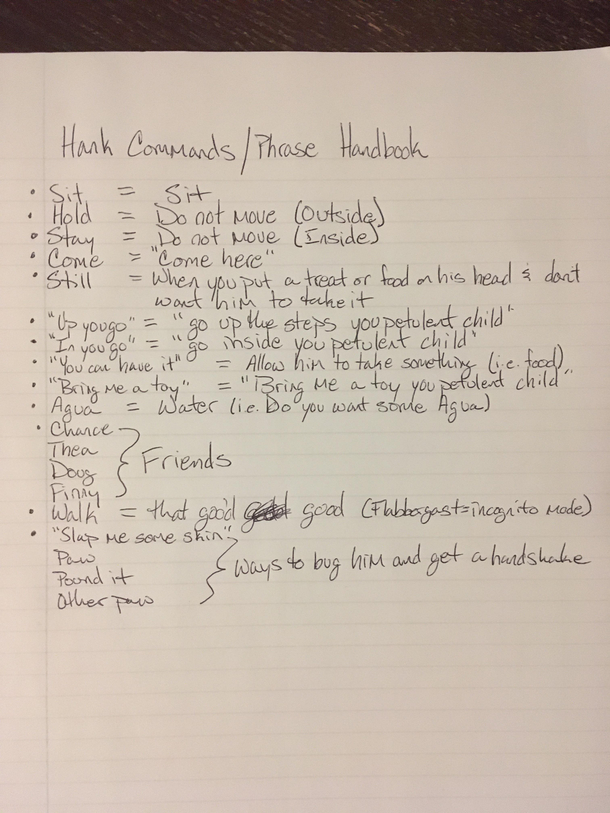 Hank Commands/Phrase Handbook
• Sit = Sit
• Hold = Do not move (Outside)
• Stay = Do not move (Inside)
• Come = "Come here"
• Still = When you put a treat or food on his head & don't
want him to take it
• "Up you go" = "go up the steps you petulent child"
• "In you go" = "go inside you petulent child"
• "You can have it" = Allow him to take something (i.e. food)
• "Bring me a toy" = "Bring me a toy you petulent child"
• Agua = Water (i.e. Do you want some Agua)
• Chance
Thea
Doug
Finny
Friends
• Walk = that good good (Flabbergast=incognito mode)
• "Slap me some skin"
Paw
Pound it
Other paw
ways to bug him and get a handshake